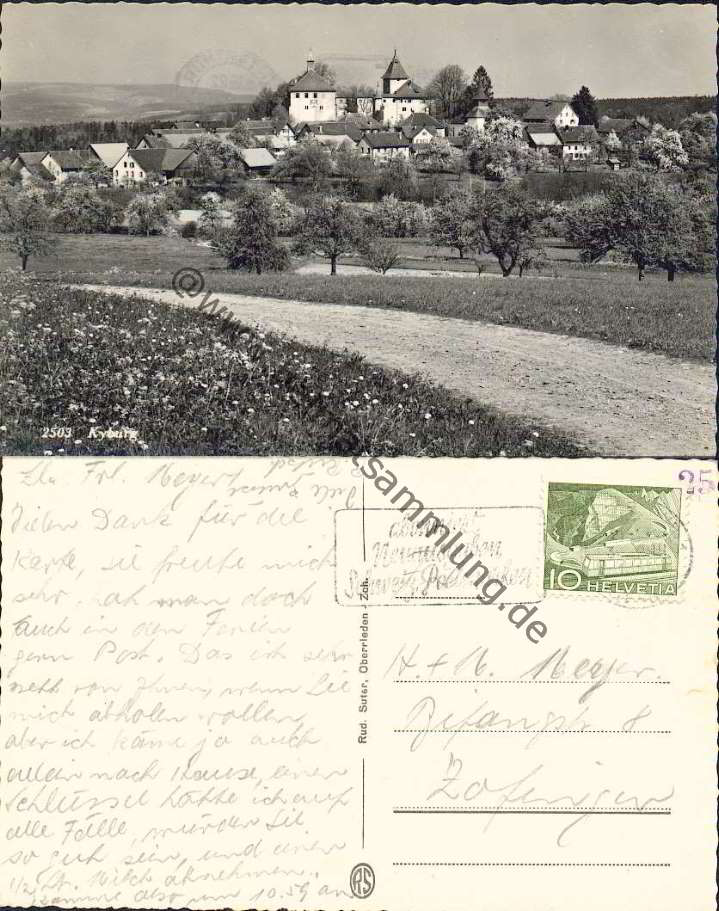 2503 Kyburg
@www.ansichtskartensammlung.de
Frl. Meyer,
Vielen Dank für die
Karte, sie freute mich
sehr, hat man doch
auch in den Ferien
gern Post. Das ist sehr
nett von Ihnen, wenn Sie
mich abholen wollen,
aber ich käme ja auch
allein nach Hause, einen
Schlüssel hätte ich auf
alle Fälle, würden Sie
so gut sein, und einen
1/2 Lt. Milch abnehmen.
komme also um 10.59 an
Rud. Suter, Oberrieden - Zch.
RS
25
10 HELVETIA
H. + M. Meyer.
Bifangstr 8
Zofingen